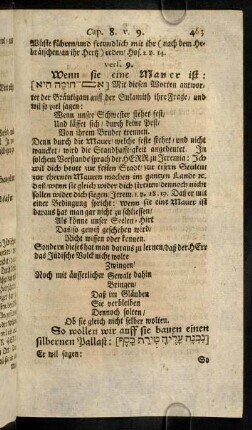 Cap. 8. v. 9. 463
Wüste führen/und freundlich mit ihr (nach dem He-
bräischen/an ihr Hertz) reden/ Hos. 2. v. 14.
vers. 9.
Wenn sie eine Mauer ist:
[אם חומה היא] Mit diesen Worten antwor-
tet der Bräutigam auff der Sulamith ihre Frage/ und
wil so viel sagen:
Wenn unsre Schwester stehet fest/
Und lässet sich/ durch keine Pest/
Von ihrem Bruder trennen.
Denn durch die Mauer/ welche feste stehet/ und nicht
wancket/ wird die Standhafftigkeit angedeutet. In
solchem Verstand sprach der HERR zu Jeremia: Ich
wil dich heute zur festen Stad/ zur eisern Seulen/
zur ehernen Mauren machen im gantzen Lande ꝛc.
daß/ wenn sie gleich wider dich streiten/ sie dennoch nicht
sollen wider dich siegen/ Jerem. 1. v. 18. Daß er mit
einer Bedingung spricht: wenn sie eine Mauer ist
daraus hat man gar nicht zu schliessen/
Als könne unser Seelen-Hirt
Das so gewiß geschehen wird/
Nicht wissen oder kennen.
Sondern dieses hat man daraus zu lernen/ daß der HErr
das Jüdische Volck nicht wolte
Zwingen/
Noch mit äusserlicher Gewalt dahin
Bringen/
Daß im Gläuben
Sie verbleiben
Dennoch solten/
Ob sie gleich nicht selber wolten.
So wollen wir auff sie bauen einen
silbernen Pallast: [נבנה עליה טירת כסף]
Er wil sagen:
So